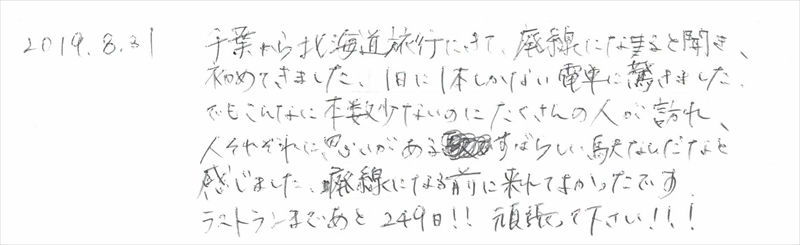 2019.8.31 千葉から北海道旅行にきて、廃線になると聞き、
初めてきました。1日に1本しかない電車に驚きました。
でもこんなに本数少ないのにたくさんの人が訪れ、
人それぞれに思いがあるすばらしい駅なんだなと
感じました。廃線になる前に来れてよかったです
ラストランまであと249日!! 頑張って下さい!!!